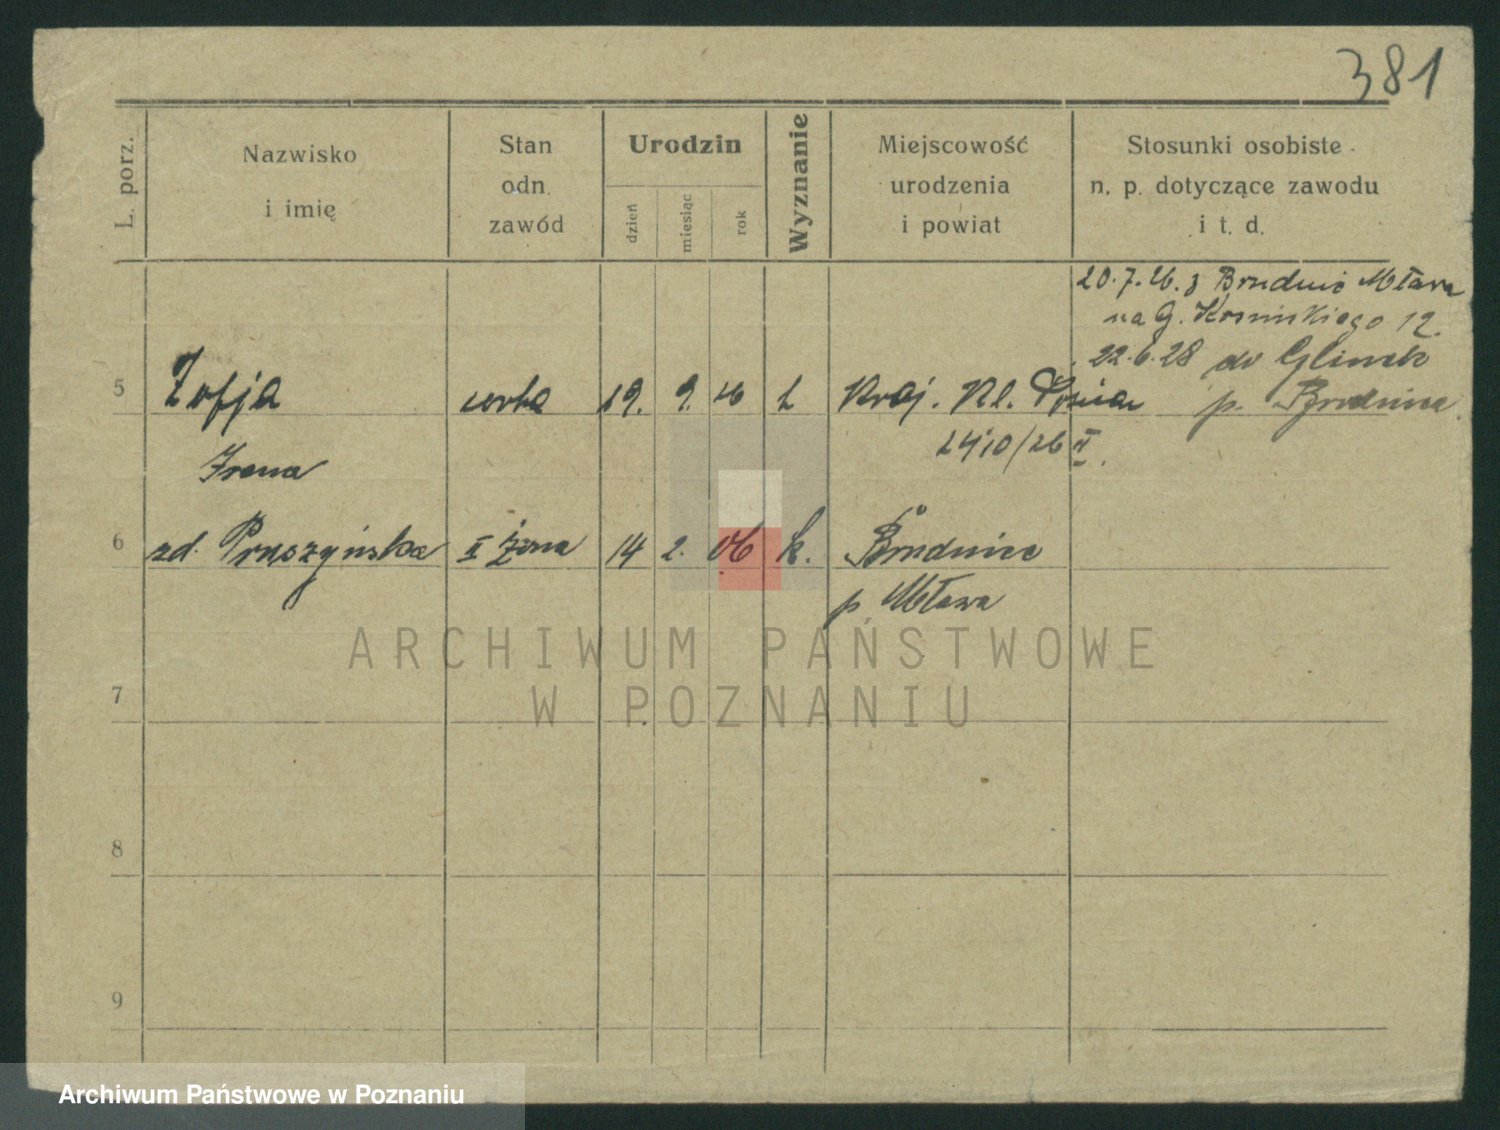 381
L. porz.
Nazwisko
i imię
Stan
odn.
zawód
Urodzin
dzień
miesiąc
rok
Wyznanie
Miejscowość
urodzenia
i powiat
Stosunki osobiste
n. p. dotyczące zawodu
i t. d.
20.7.26. z Brudnic Mława
na G. Kosińskiego 12.
22.6.28 do Glinek
5 Zofja córka 19. 9. 26 k Kraj. Kl. Poznań p. Brudnice
24/10/26 II.
Irena
6 zd. Pruszyńska II żona 14 2. 06 k. Brudnice
p Mława
7
8
9
ARCHIWUM PAŃSTWOWE
W POZNANIU
Archiwum Państwowe w Poznaniu